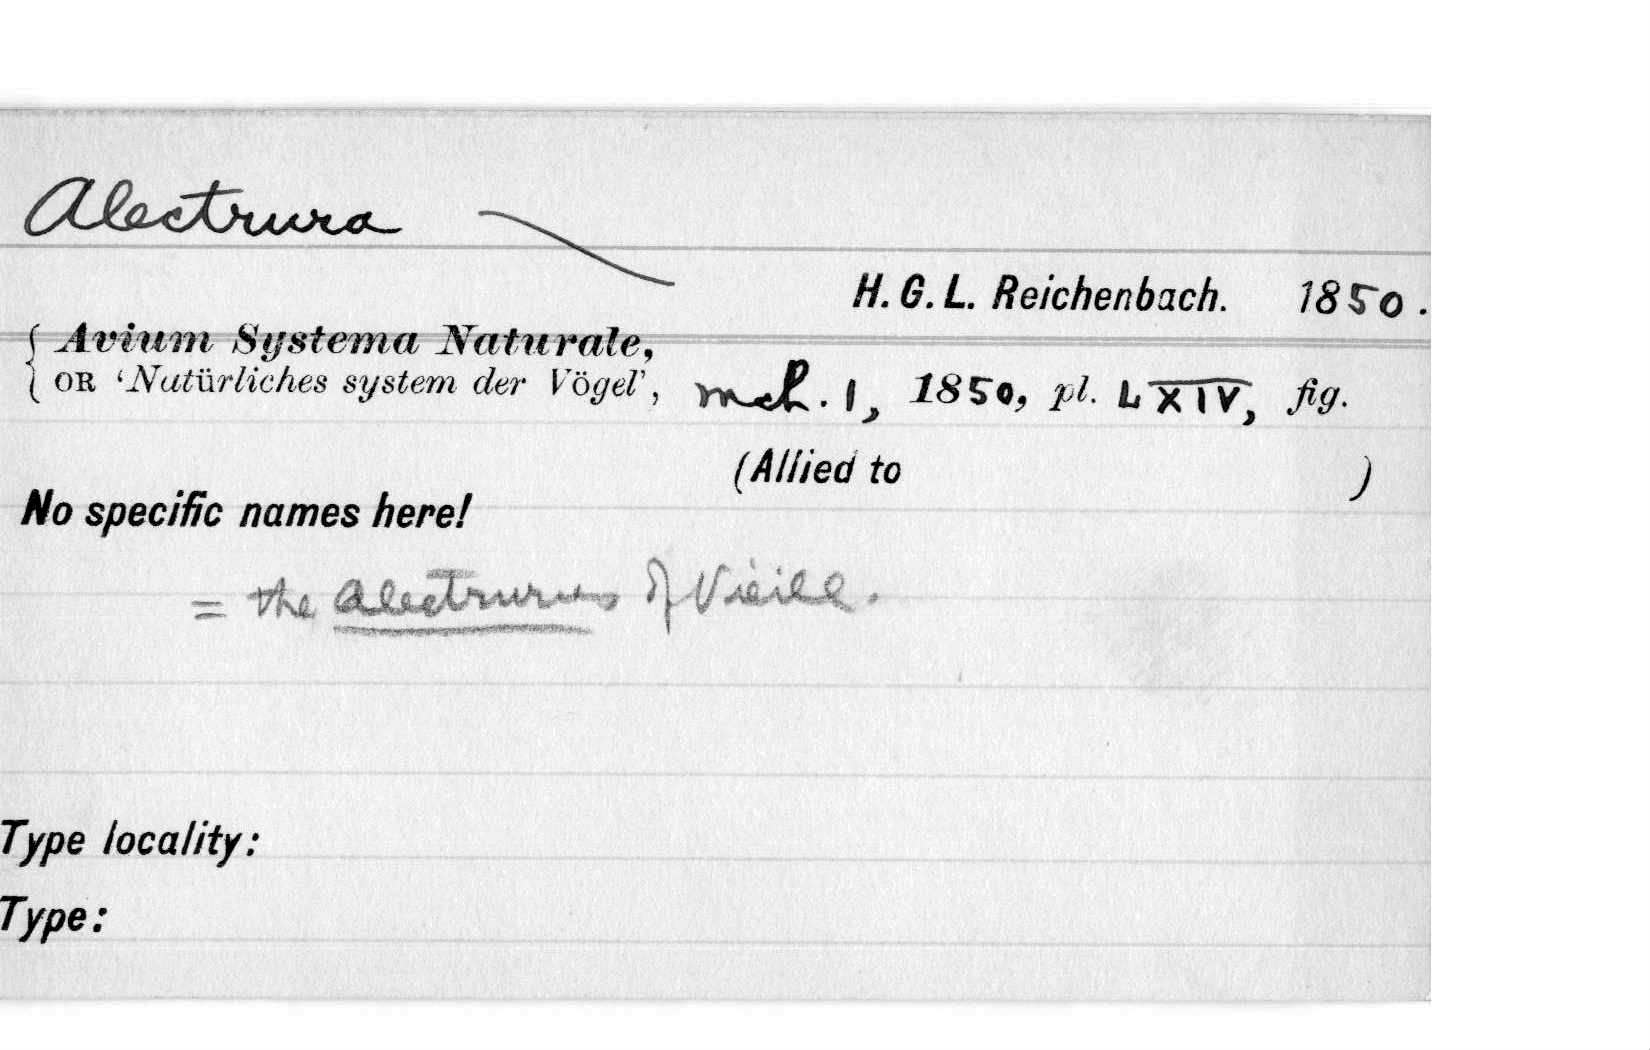 Alectrura
H. G. L. Reichenbach. 1850.
{ Avium Systema Naturale,
{ OR ‘Natürliches system der Vögel’, mch. 1, 1850, pl. LXIV, fig.
(Allied to )
No specific names here!
= the Alectrurus of Vieill.
Type locality:
Type: